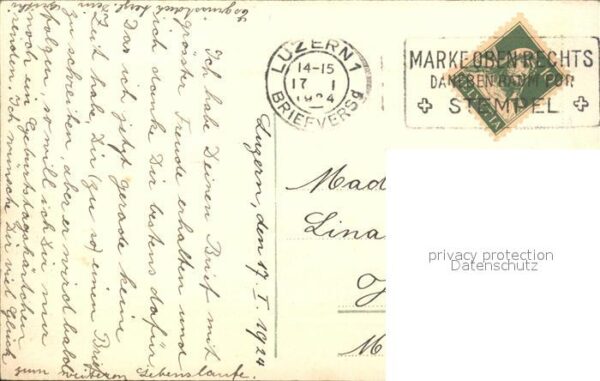 LUZERN 1
14-15
17 I
1924
BRIEFVERSd
MARKE OBEN RECHTS
DANEBEN RAUM FÜR
STEMPEL
HELVETIA
Luzern, den 17. I. 1924
Ich habe Deinen Brief mit
grösster Freude erhalten und
ich danke Dir bestens dafür.
Da ich jetzt gerade keine
Zeit habe, Dir (zu so) einen Brief
zu schreiben, aber er wird bald
folgen, so will ich Dir nur
noch ein Geburtstagskärtchen
senden. Ich wünsche Dir viel Glück
zum weiteren Lebenslaufe.
Es grüsst Dich herzl. Dein
Mad
Lina
M
privacy protection
Datenschutz